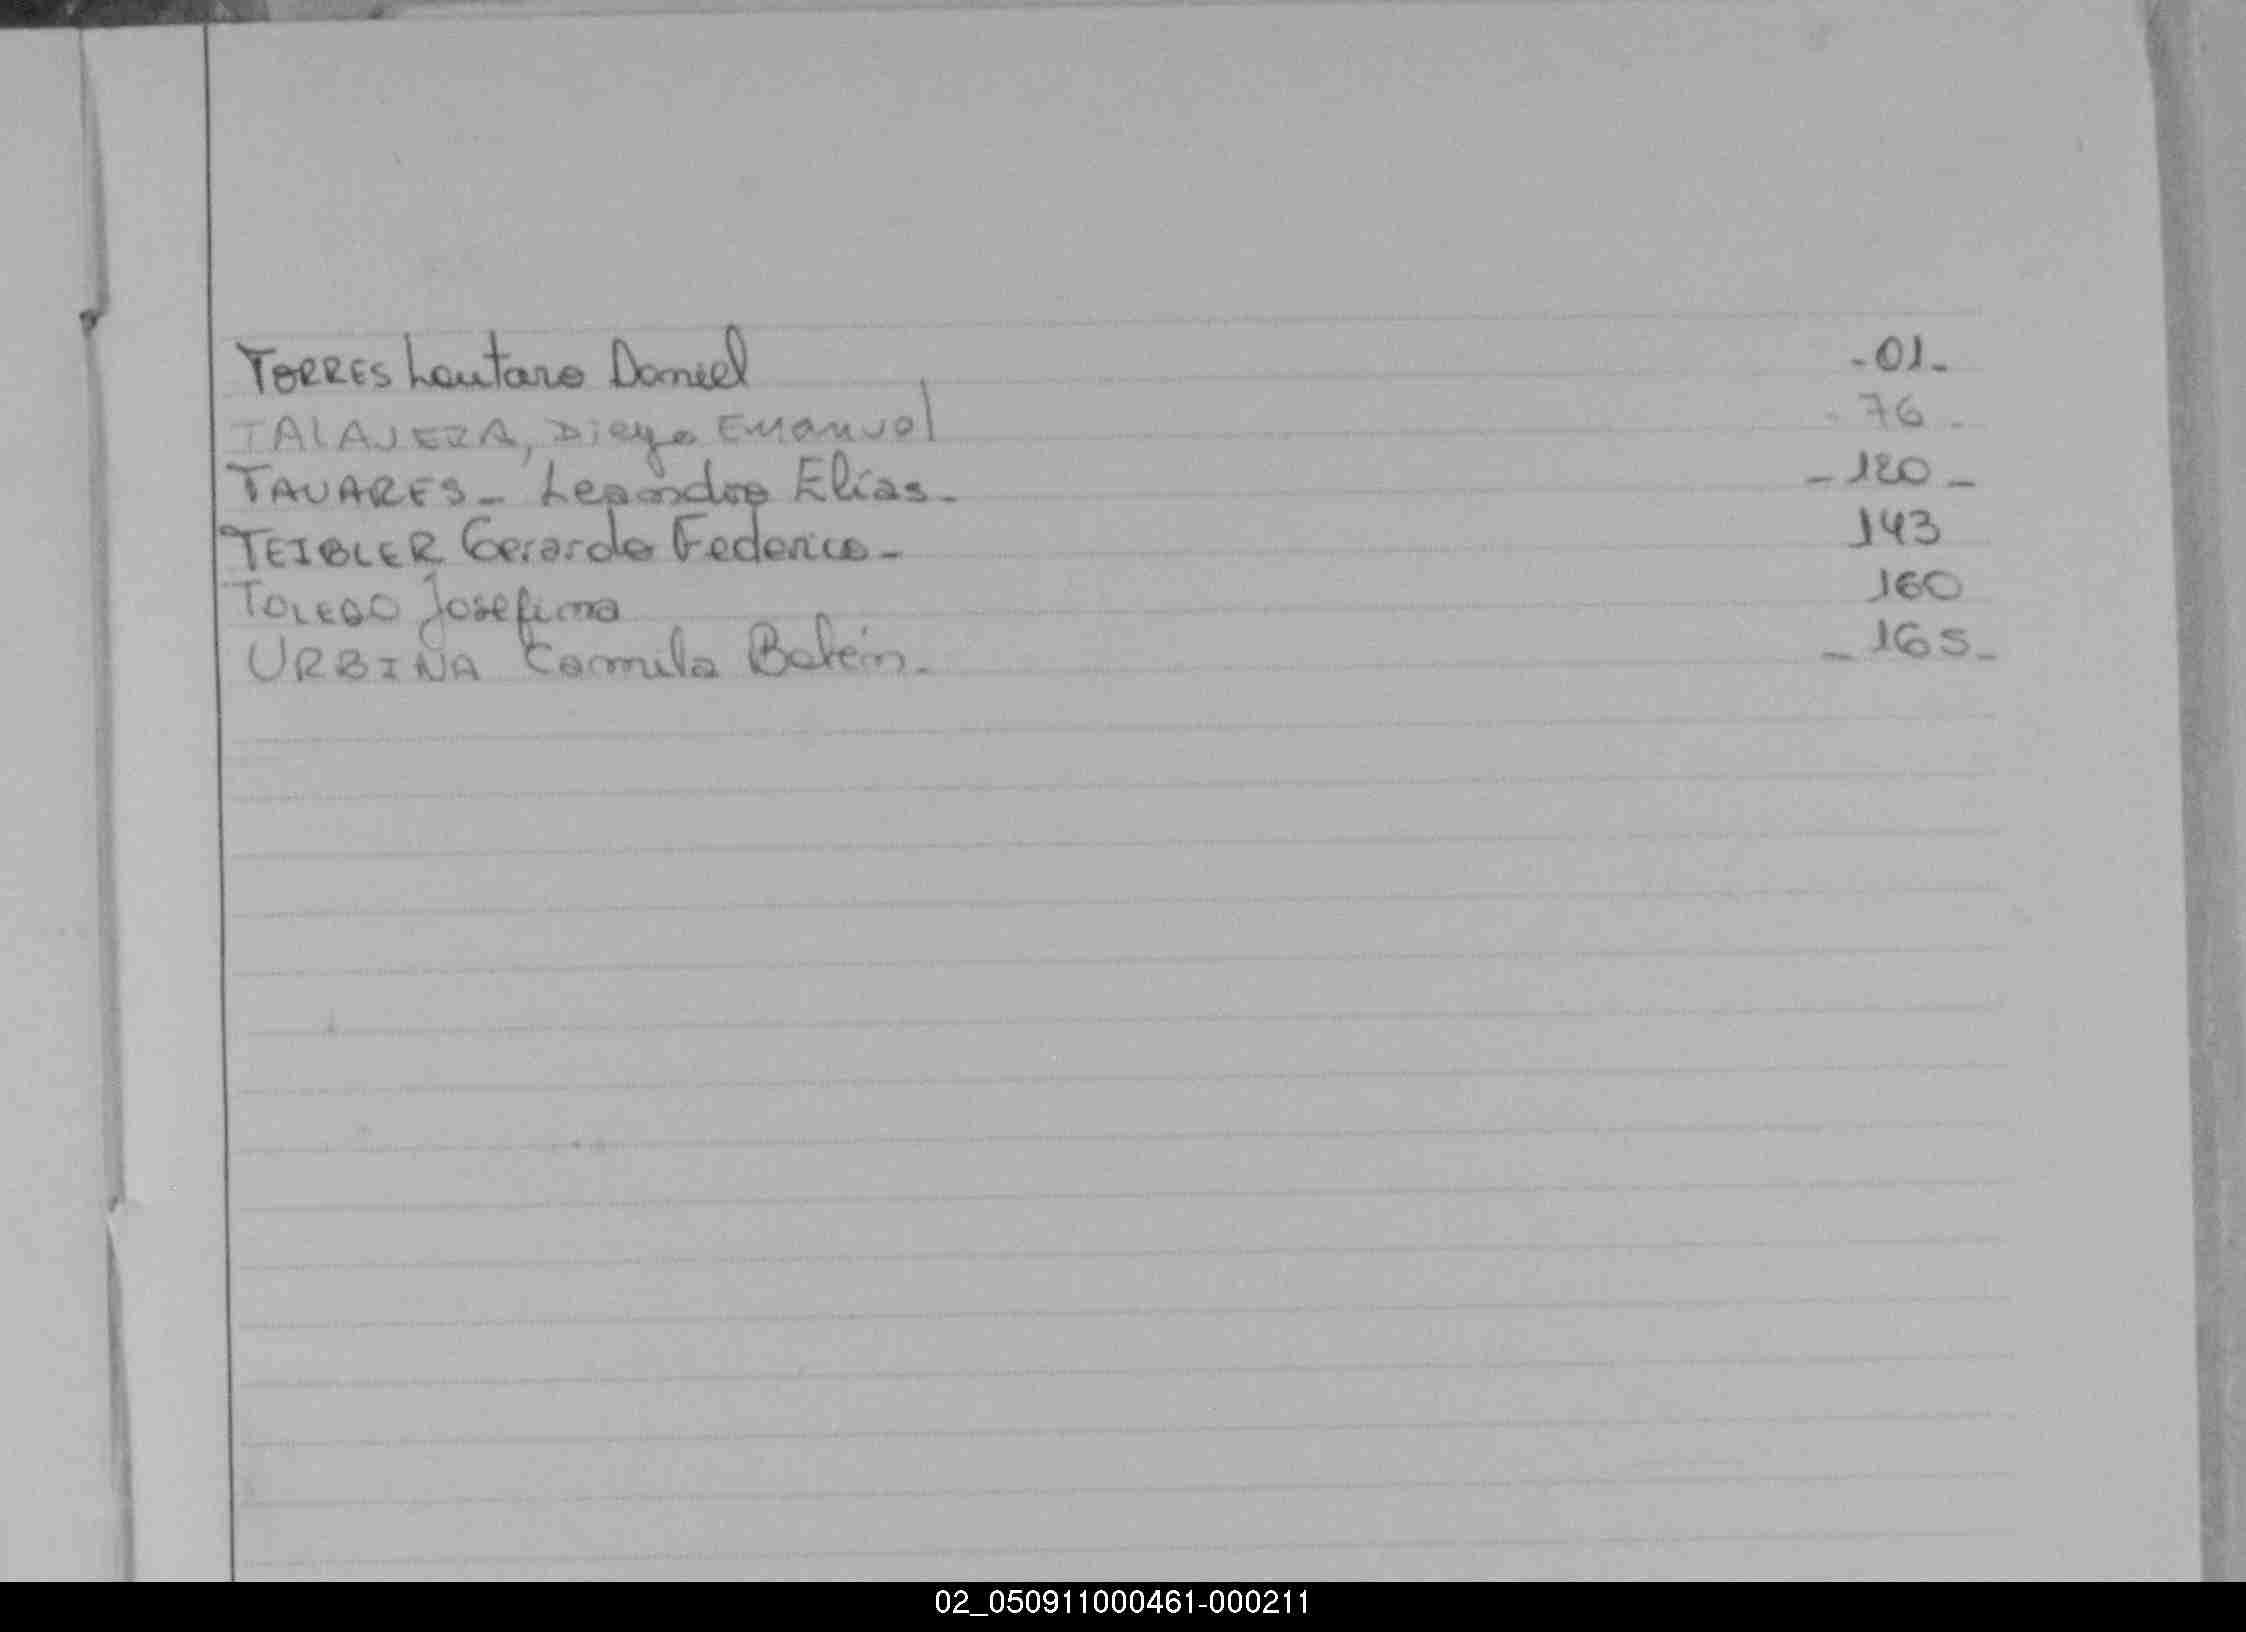 TORRES Lautaro Daniel -01-
TALAVERA, Diego Emanuel - 76 -
TAVARES - Leandro Elías - - 120 -
TEIBLER Gerardo Federico - 143
TOLEDO Josefina 160
URBINA Camila Belén - - 165 -
02_050911000461-000211